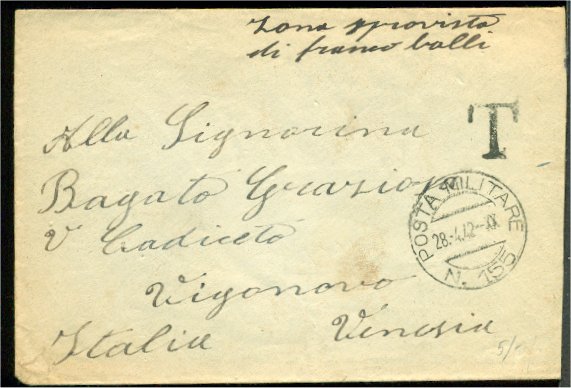 Zona sprovista
di franco bolli
T
Alla Signorina
Bagato Graziosa
V Cadiceto
Vigonovo
Italia Venesia
POSTA MILITARE
28.4.42-XX
N. 155